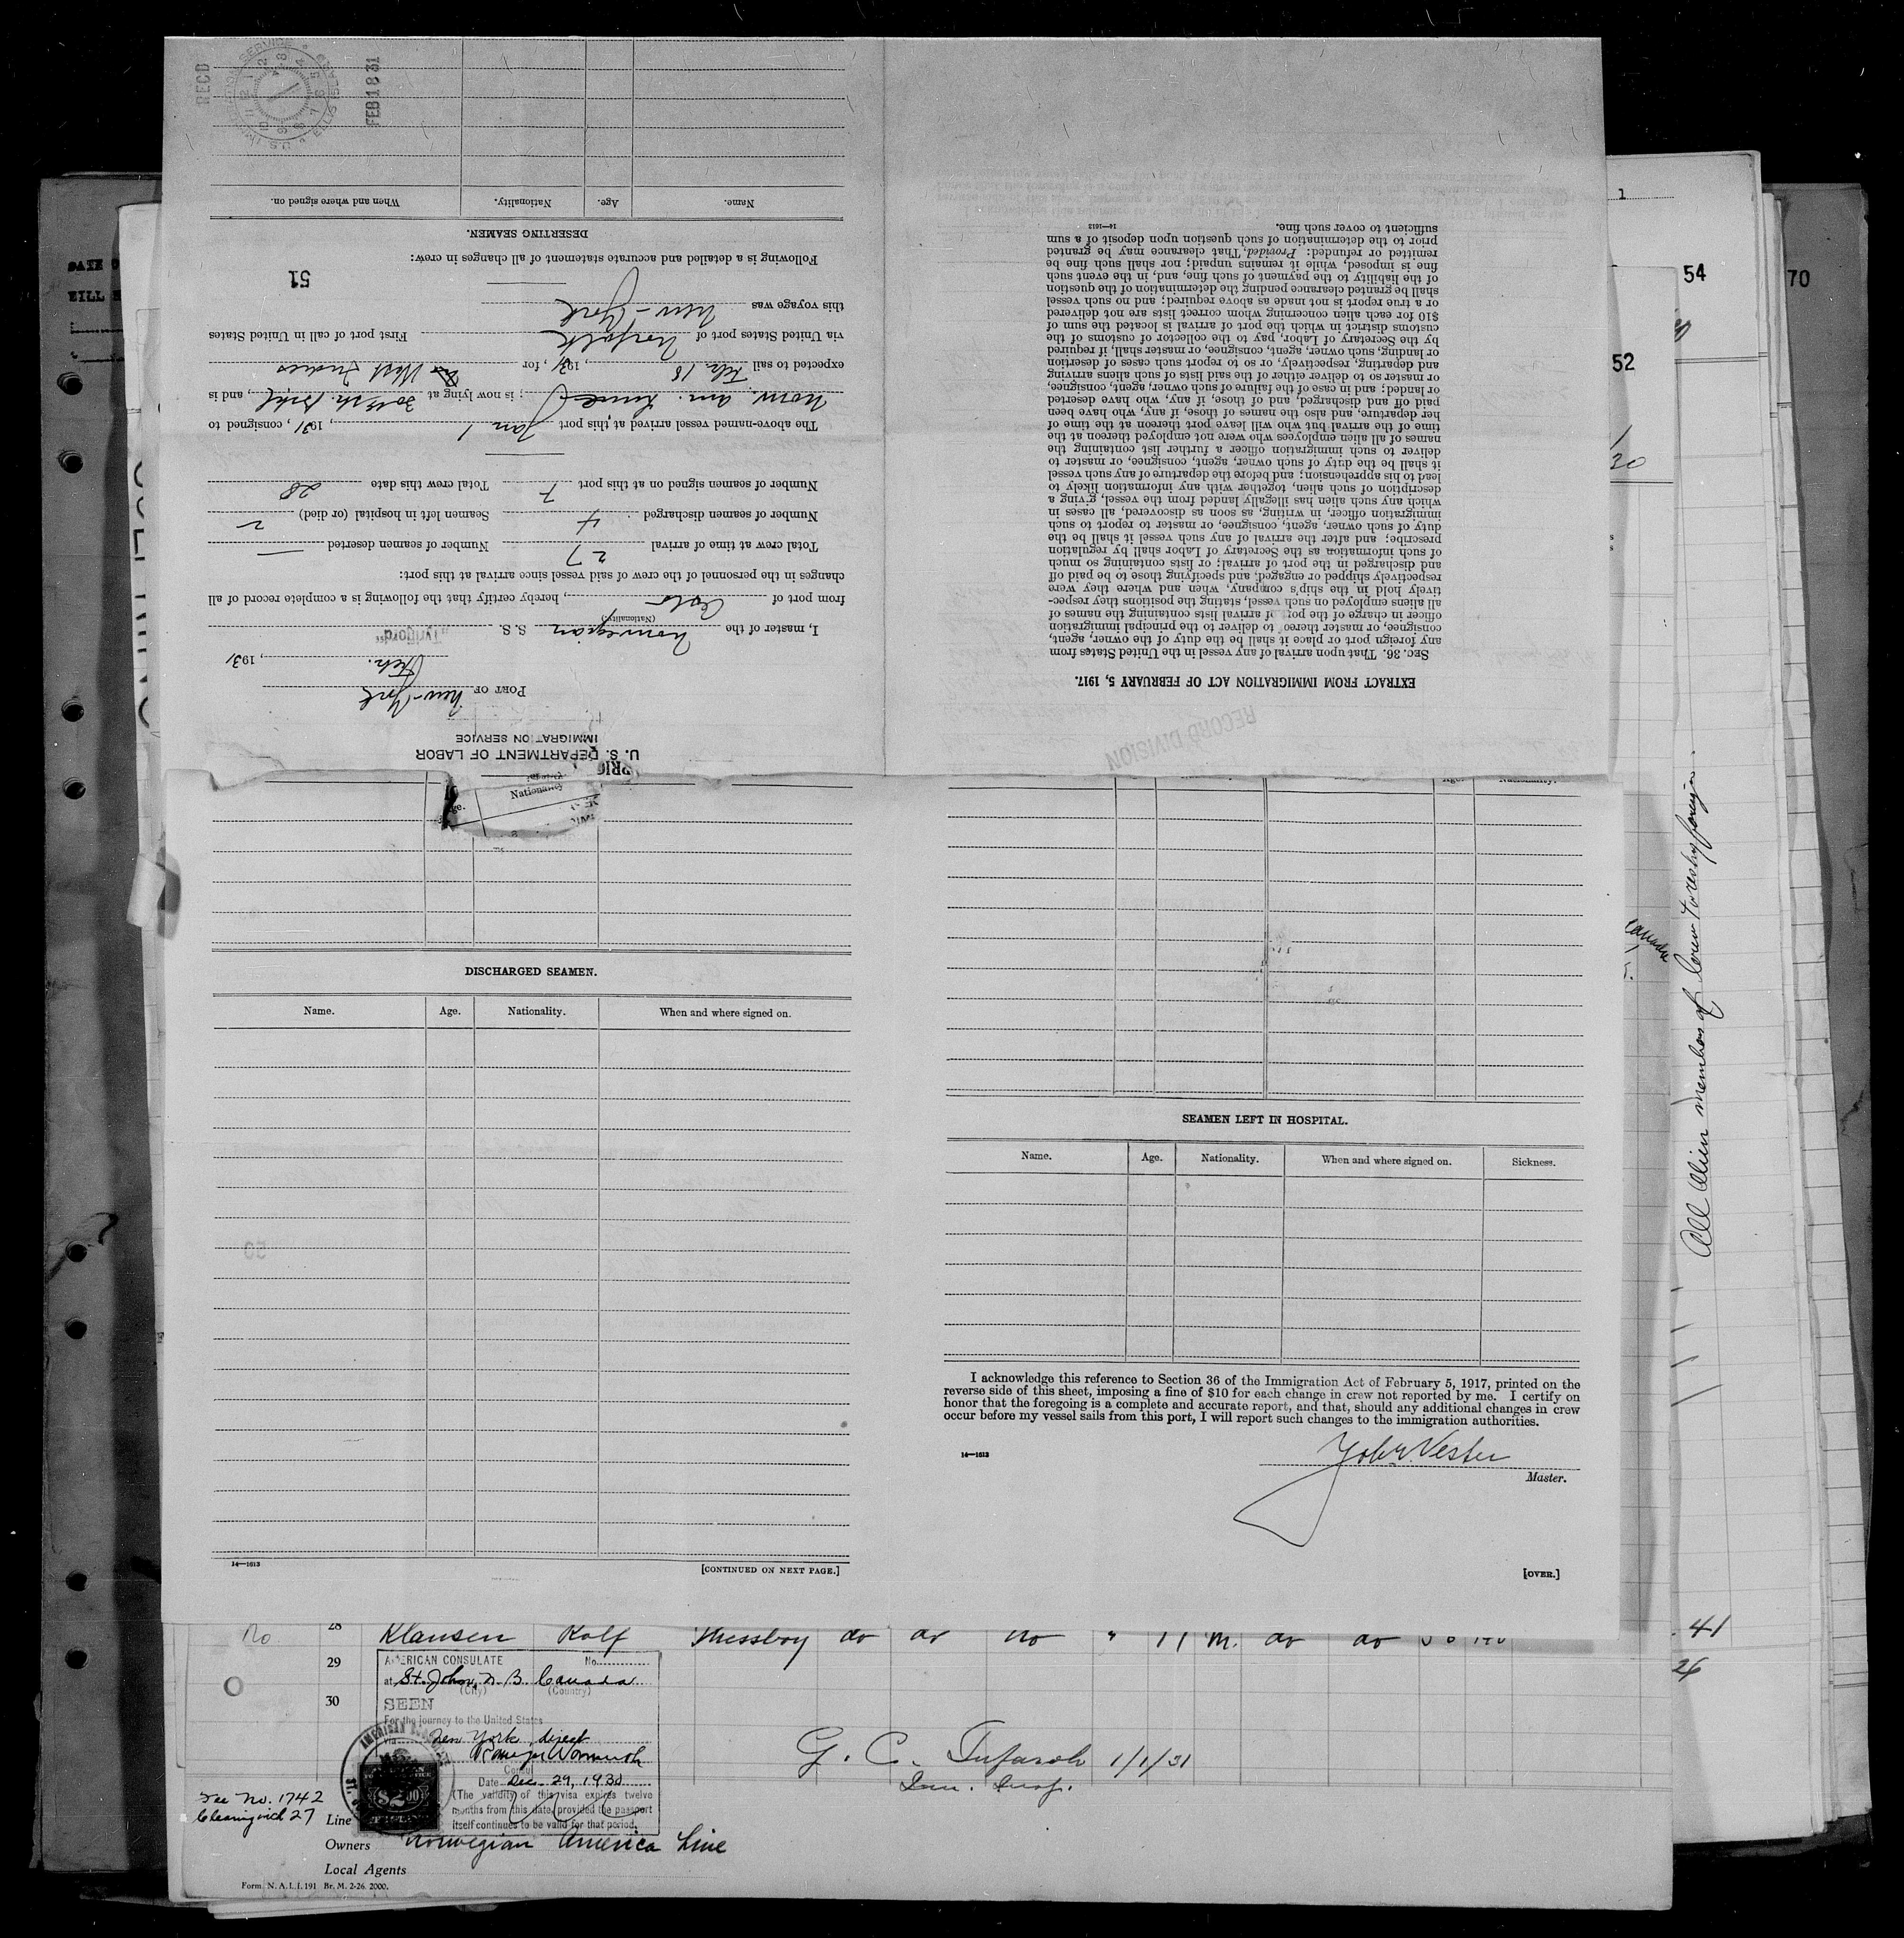 U. S. DEPARTMENT OF LABOR
IMMIGRATION SERVICE
PORT OF New-York
Feb. , 1931
I, master of the Norwegian S. S. "Tyrifjord"
(Nationality)
from port of Oslo , hereby certify that the following is a complete record of all
changes in the personnel of the crew of said vessel since arrival at this port:
Total crew at time of arrival 27 Number of seamen deserted —
Number of seamen discharged 4 Seamen left in hospital (or died) 2
Number of seamen signed on at this port 7 Total crew this date 28
The above-named vessel arrived at this port Jan 1 , 1931, consigned to
Norw. Am. Line ; is now lying at 30th str. Bkl , and is
expected to sail Feb. 18 , 1931, for West Indies
via United States port of Norfolk First port of call in United States
this voyage was New-York
Following is a detailed and accurate statement of all changes in crew:
51
DESERTING SEAMEN.
Name. Age. Nationality. When and where signed on.
REC'D
FEB 18 31
EXTRACT FROM IMMIGRATION ACT OF FEBRUARY 5, 1917.
SEC. 36. That upon arrival of any vessel in the United States from
any foreign port or place it shall be the duty of the owner, agent,
consignee, or master thereof to deliver to the principal immigration
officer in charge of the port of arrival lists containing the names of
all aliens employed on such vessel, stating the positions they respec-
tively hold in the ship's company, when and where they were
respectively shipped or engaged, and specifying those to be paid off
and discharged in the port of arrival; or lists containing so much
of such information as the Secretary of Labor shall by regulation
prescribe; and after the arrival of any such vessel it shall be the
duty of such owner, agent, consignee, or master to report to such
immigration officer, in writing, as soon as discovered, all cases in
which any such alien has illegally landed from the vessel, giving a
description of such alien, together with any information likely to
lead to his apprehension; and before the departure of any such vessel
it shall be the duty of such owner, agent, consignee, or master to
deliver to such immigration officer a further list containing the
names of all alien employees who were not employed thereon at the
time of the arrival but who will leave port thereon at the time of
her departure, and also the names of those, if any, who have been
paid off and discharged, and of those, if any, who have deserted
or landed; and in case of the failure of such owner, agent, consignee,
or master so to deliver either of the said lists of such aliens arriving
and departing, respectively, or so to report such cases of desertion
or landing, such owner, agent, consignee, or master shall, if required
by the Secretary of Labor, pay to the collector of customs of the
customs district in which the port of arrival is located the sum of
$10 for each alien concerning whom correct lists are not delivered
or a true report is not made as above required; and no such vessel
shall be granted clearance pending the determination of the question
of the liability to the payment of such fine, and, in the event such
fine is imposed, while it remains unpaid; nor shall such fine be
remitted or refunded: Provided, That clearance may be granted
prior to the determination of such question upon deposit of a sum
sufficient to cover such fine.
14—1613
RECORD DIVISION
Nationality
DISCHARGED SEAMEN.
Name. Age. Nationality. When and where signed on.
14—1613
[CONTINUED ON NEXT PAGE.]
Nationality.
SEAMEN LEFT IN HOSPITAL.
Name. Age. Nationality. When and where signed on. Sickness.
I acknowledge this reference to Section 36 of the Immigration Act of February 5, 1917, printed on the
reverse side of this sheet, imposing a fine of $10 for each change in crew not reported by me. I certify on
honor that the foregoing is a complete and accurate report, and that, should any additional changes in crew
occur before my vessel sails from this port, I will report such changes to the immigration authorities.
14—1613
Master.
[OVER.]
no 28 Klausen Rolf Messboy do do no " 17 m. do do
29
30
AMERICAN CONSULATE No.
at St. John, N. B. Canada
(City) (Country)
SEEN
For the journey to the United States
via New York direct
Consul
Date Dec. 29, 1930
(The validity of this visa expires twelve
months from this date, provided the passport
itself continues to be valid for that period.
$2.00
G. C. 1/1/31
Imm. Insp.
See No. 1742
27
Line
Owners Norwegian America Line
Local Agents
Form N. A. L. I. 191 Br. M. 2-26. 2000.
1
54
70
52
Canada
All Alien members of Crew to reship foreign
41
26